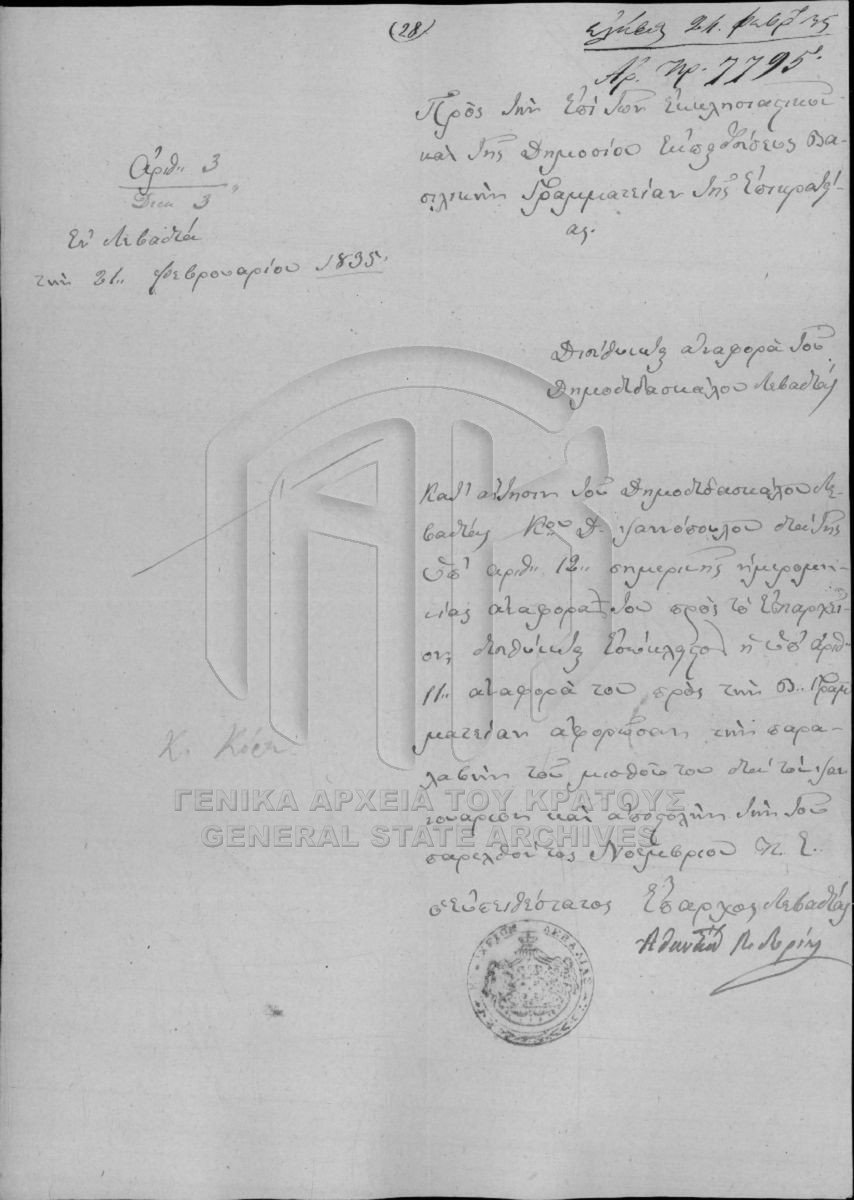 (28)
ἐλήφθη 24 φεβρ 35
Αρ. Πρ. 7795.
Πρὸς τὴν Ἐπὶ τῶν Ἐκκλησιαστικῶν
καὶ τῆς Δημοσίου Ἐκπαιδεύσεως Βα-
σιλικὴν Γραμματείαν τῆς Ἐπικρατεί-
ας.
Ἀριθ. 3
Διεκ 3
Ἐν Λεβαδείᾳ
τὴν 21 Φεβρουαρίου 1835.
Διευθύνεται ἀναφορὰ τοῦ
Δημοδιδασκάλου Λεβαδείας
Κατ' αἴτησιν τοῦ Δημοδιδασκάλου Λε-
βαδείας Κου Δ. Γιαννόπουλου διὰ τῆς
ὑπ' ἀριθ. 12 σημερινῆς ἡμερομη-
νίας ἀναφορᾶς του πρὸς τὸ Ἐπαρχεῖ-
ον, διευθύνεται ἡ ὑπ' ἀριθ.
11 ἀναφορά του πρὸς τὴν Β. Γραμ-
ματείαν ἀφορῶσαν τὴν παρα-
λαβὴν τοῦ μισθοῦ του διὰ τὸν Ἰαν-
νουάριον καὶ ἀποστολὴν τὴν τοῦ
παρελθόντος Νοεμβρίου π. ἔ.
ὁ εὐπειθέστατος Ἔπαρχος Λεβαδείας
Κ.
ΓΕΝΙΚΑ ΑΡΧΕΙΑ ΤΟΥ ΚΡΑΤΟΥΣ
GENERAL STATE ARCHIVES